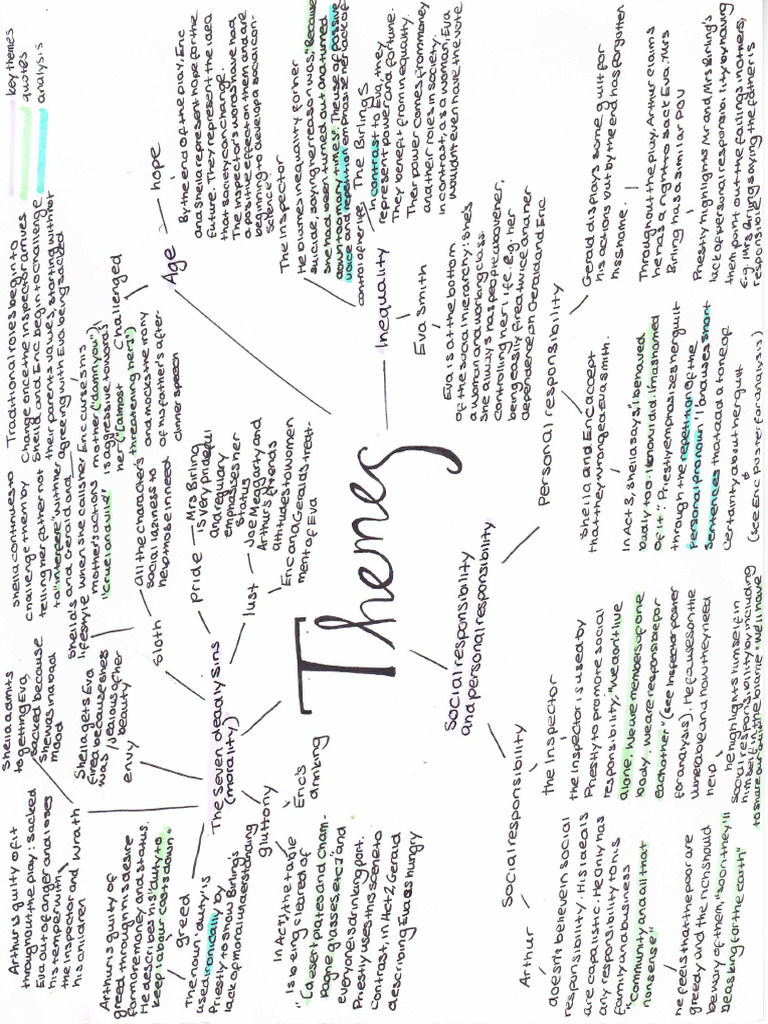 key themes
quotes
analysis
Themes
Age
hope
By the end of the play, Eric
and Sheila represent hope for the
future. They represent the idea
that society can change.
The inspector's words have had
a positive effect on them and are
beginning to develop a social con-
science.
Traditional roles begin to
Change once the inspector arrives
Sheila and Eric begin to challenge
their parents values, starting with
agreeing with Eva being sacked
Challenged
sheila continues to
challenge them by
telling her father not
to "interfere" with her
Sheila's and and
lifestyle when she calls her
mothers actions
"cruel and vile"
Eric curses his
mother ("damn you")
is aggressive towards
her ("[almost
threatening her]")
and mocks the irony
of his father's after-
dinner speech
Inequality
The inspector
He blames inequality for her
suicide, saying her reason was; "Because
she had been turned out and turned
down too many times." The use of passive
voice and repetition emphasise her lack of
control of her life
The Birlings
In contrast to Eva, they
represent power and fortune.
They benefit from inequality.
Their power comes from money
and their roles in society.
In contrast, as a woman, Eva
wouldn't even have the vote
Eva Smith
Eva is at the bottom
of the social hierarchy: she's
a woman and working class.
She always has people above her,
controlling her life. E.g. her
being easily fired twice and her
dependence on Gerald and Eric
Social responsibility
and personal responsibility
Personal responsibility
Gerald displays some guilt for
his actions but by the end has forgotten
his shame.
Throughout the play, Arthur claims
he has a right to sack Eva. Mrs
Birling has a similar POV
Priestly highlights Mr and Mrs Birling's
lack of personal responsibility by having
them point out the failings in others,
E.g. Mrs Birling saying the father is
responsible
Sheila and Eric accept
that they wronged Eva Smith.
In Act 3, Sheila says "I behaved
badly too. I know I did. I'm ashamed
of it". Priestly emphasizes her guilt
through the repetition of the
personal pronoun 'I' and uses short
sentences that add a tone of
certainty about her guilt
(see Eric Poster for analysis)
Social responsibility
the Inspector
the Inspector is used by
Priestly to promote social
responsibility, "We don't live
alone. We are members of one
body. We are responsible for
eachother" (see Inspector poster
for analysis). He focuses on the
vulnerable and how they need
help
he highlights himself in
social responsibility by including
himself in the blame - "we'll have
to share our guilt"
Arthur
doesn't believe in social
responsibility. His ideals
are capalistic. He only has
any responsibility to his
family and business
"community and all that
nonsense"
he feels that the poor are
greedy and the rich should
beware of them, "soon they'll
be asking for the earth"
The seven deadly sins
(morality)
Pride
Mrs Birling
is very prideful
and regulary
emphasises her
status
lust
Joe Meggarty and
Arthur's friends
attitudes to women
Eric and Geralds treat-
ment of Eva
sloth
All the characters
social laziness to
help those in need
envy
Sheila gets Eva
fired because she's
was jealous of her
beauty
Wrath
Sheila admits
to getting Eva
sacked because
she was in a bad
mood
Arthur is guilty of it
throughout the play: sacked
Eva out of anger and loses
his temper with
the inspector and
his children
greed
Arthur is guilty of
greed through his desire
for more money and status.
He describes his "duty to
keep labour costs down"
The noun 'duty' is
used ironically by
Priestly to show Birling's
lack of moral understanding
gluttony
Eric's
drinking
In Act 1, the table
"is being cleared of
"[desert plates and cham-
pagne glasses, etc]" and
everyone is drinking port.
Priestly uses this scene to
contrast, in Act 2, Gerald
describing Eva as hungry